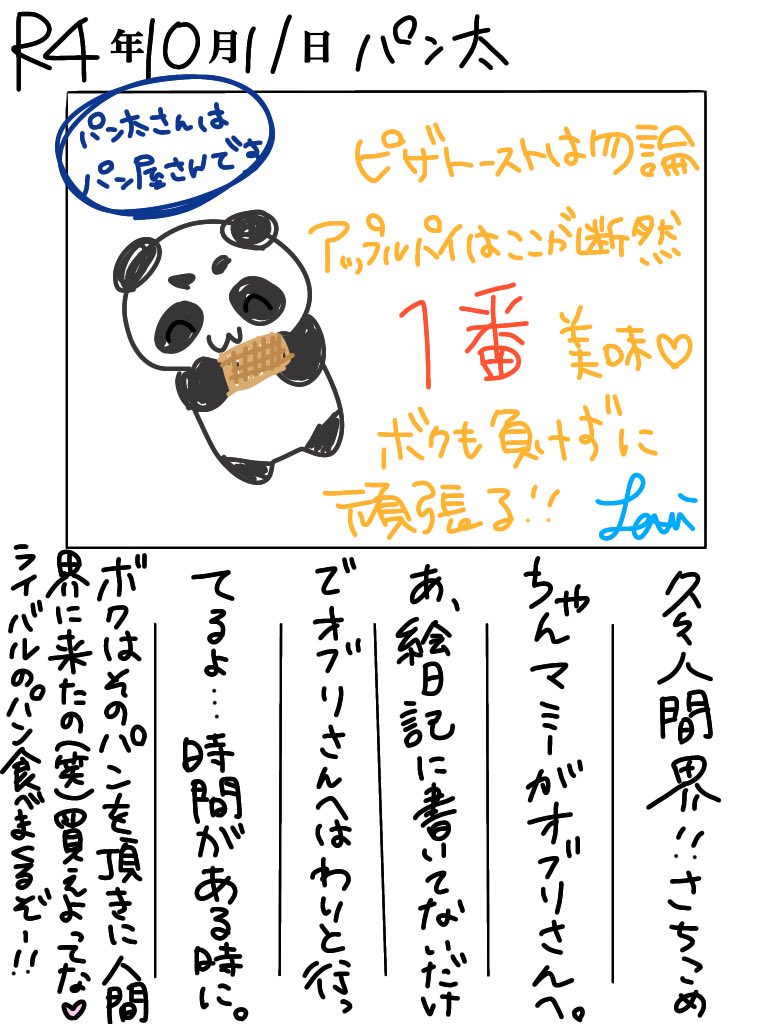 R4年10月11日 パン太
パン太さんは
パン屋さんです
ピザトーストは勿論
アップルパイはここが断然
1番 美味♡
ボクも負けずに
頑張る!!
久々人間界!!さちこめ
ちゃんマミーがオブリさんへ。
あ、絵日記に書いてないだけ
でオブリさんへはわりと行っ
てるよ…時間がある時に。
ボクはそのパンを頂きに人間
界に来たの(笑)買えよってな♡
ライバルのパン食べまくるぞー!!